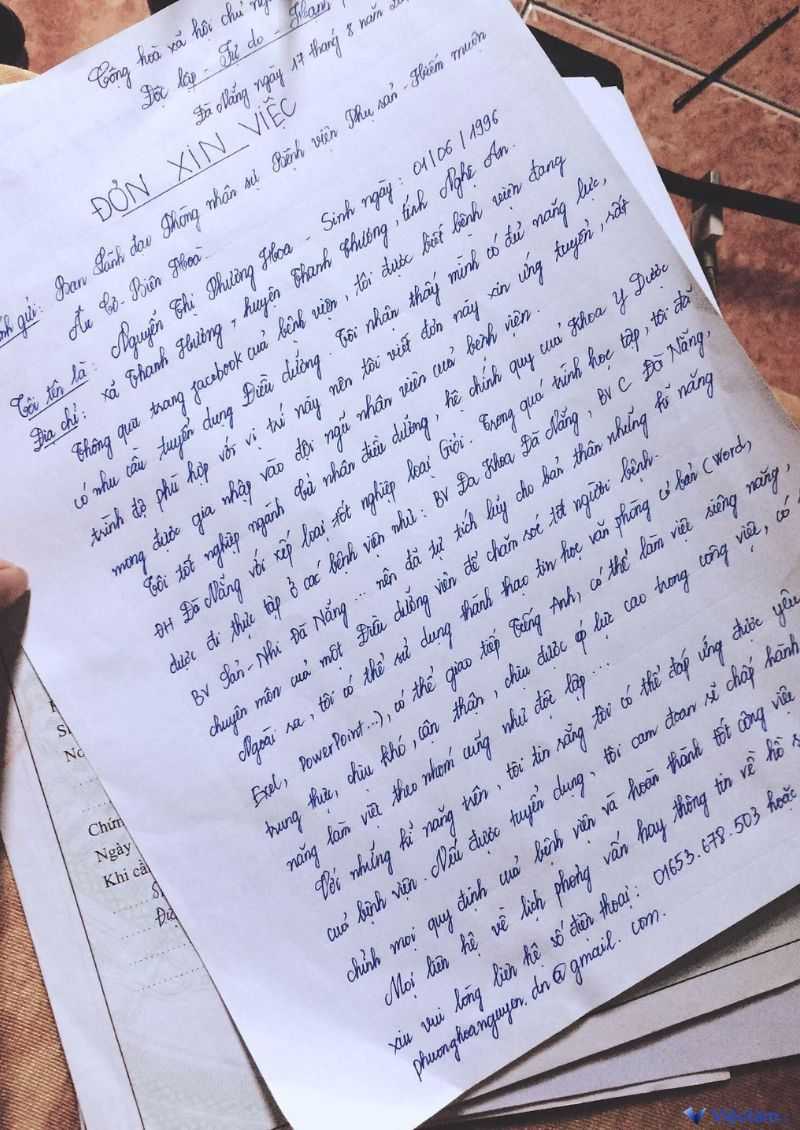 Cộng hoà xã hội chủ ng
Độc lập - Tự do - Hạnh
Đà Nẵng ngày 17 tháng 8 năm
ĐƠN XIN VIỆC
gửi: Ban Lãnh đạo Phòng nhân sự Bệnh viện Phụ sản - Hiếm muộn
Âu Cơ - Biên Hoà
Tôi tên là: Nguyễn Thị Phương Hoa - Sinh ngày: 01/06/1996
Địa chỉ: xã Thanh Hương, huyện Thanh Chương, tỉnh Nghệ An.
Thông qua trang facebook của bệnh viện, tôi được biết bệnh viện đang
có nhu cầu tuyển dụng Điều dưỡng. Tôi nhận thấy mình có đủ năng lực,
trình độ phù hợp với vị trí này nên tôi viết đơn này xin ứng tuyển, rất
mong được gia nhập vào đội ngũ nhân viên của bệnh viện.
Tôi tốt nghiệp ngành Cử nhân điều dưỡng, hệ chính quy của Khoa Y Dược
ĐH Đà Nẵng với xếp loại tốt nghiệp loại Giỏi. Trong quá trình học tập, tôi đã
được đi thực tập ở các bệnh viện như: BV Đa Khoa Đà Nẵng, BV C Đà Nẵng,
BV Sản - Nhi Đà Nẵng... nên đã tự tích lũy cho bản thân những kĩ năng
chuyên môn của một Điều dưỡng viên để chăm soc tốt người bệnh.
Ngoài ra, tôi có thể sử dụng thành thạo tin học văn phòng cơ bản (Word,
Exel, PowerPoint...), có thể giao tiếp Tiếng Anh, có thể làm việc siêng năng,
trung thực, chịu khó, cẩn thận, chịu được áp lực cao trong công việc, có
năng làm việt theo nhóm cũng như độc lập...
Với những kĩ năng trên, tôi tin rằng tôi có thể đáp ứng được yêu
của bệnh viện. Nếu được tuyển dụng, tôi cam đoan sẽ chấp hành
chỉnh mọi quy định của bệnh viện và hoàn thành tốt công việc
Mọi liên hệ về lịch phỏng vấn hay thông tin về hồ s
xin vui lòng liên hệ số điện thoại: 01653.678.503 hoặc
phuonghoanguyen.dn@gmail.com.
Chứn
Ngày
Khi cầ